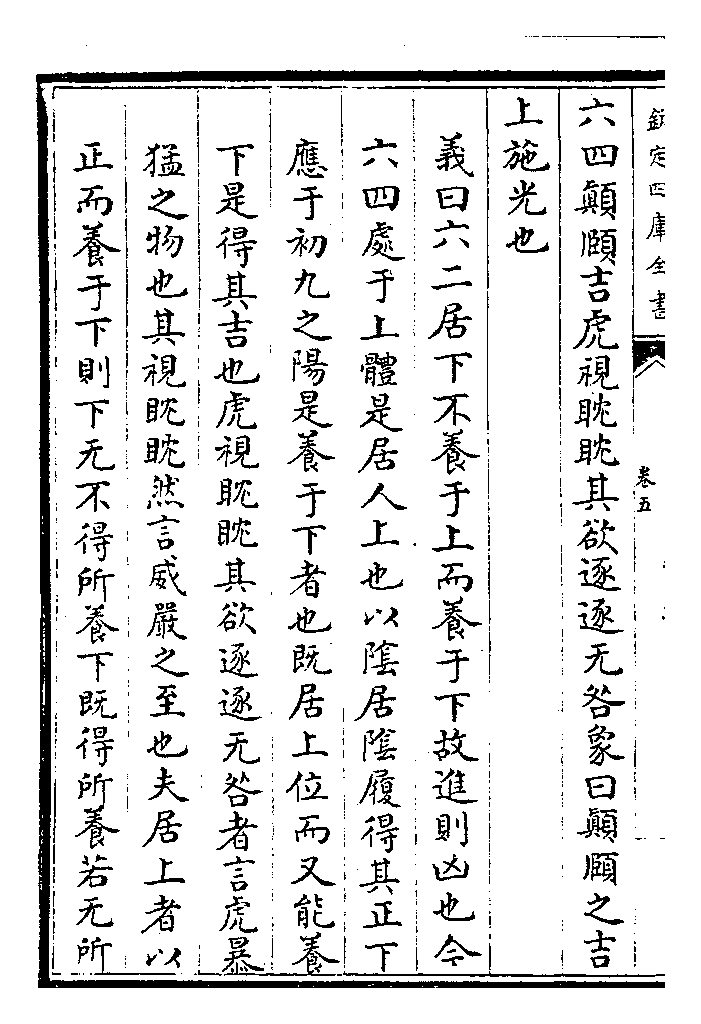 欽定四庫全書
卷五
六四顛頤吉虎視眈眈其欲逐逐无咎象曰顛頤之吉
上施光也
義曰六二居下不養于上而養于下故進則凶也今
六四處于上體是居人上也以陰居陰履得其正下
應于初九之陽是養于下者也既居上位而又能養
下是得其吉也虎視眈眈其欲逐逐无咎者言虎暴
猛之物也其視眈眈然言威嚴之至也夫居上者以
正而養于下則下无不得所養下既得所養若无所